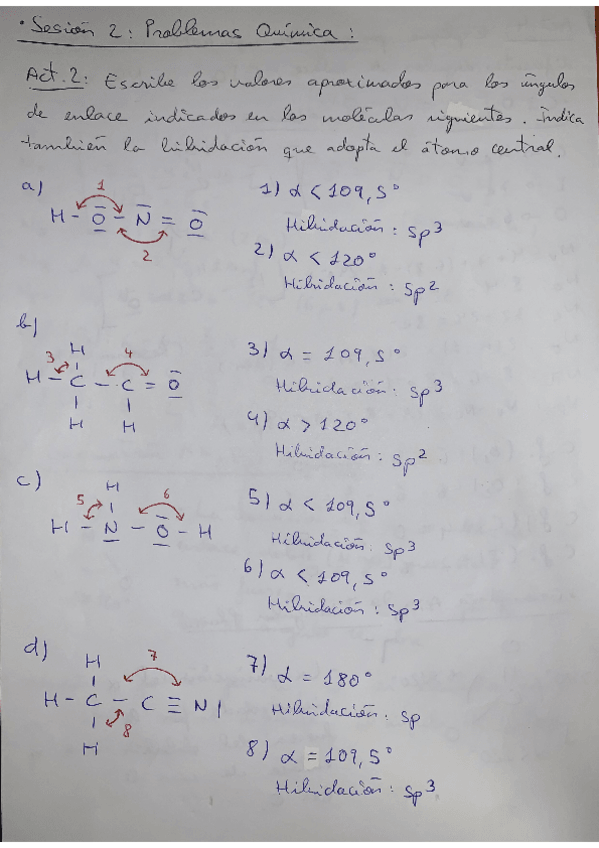 · Sesión 2: Problemas Química:
Act. 2: Escribe los valores aproximados para los ángulos
de enlace indicados en las moléculas siguientes. Indica
también la hibridación que adopta el átomo central.
a)
1
H - O - N = O
2
1) α < 109,5°
Hibridación: sp³
2) α < 120°
Hibridación: sp²
b)
H
3
4
H - C - C = O
H H
3) α = 109,5°
Hibridación: sp³
4) α > 120°
Hibridación: sp²
c)
H
5
6
H - N - O - H
5) α < 109,5°
Hibridación: sp³
6) α < 109,5°
Hibridación: sp³
d)
H
7
H - C - C ≡ N|
8
H
7) α = 180°
Hibridación: sp
8) α = 109,5°
Hibridación: sp³